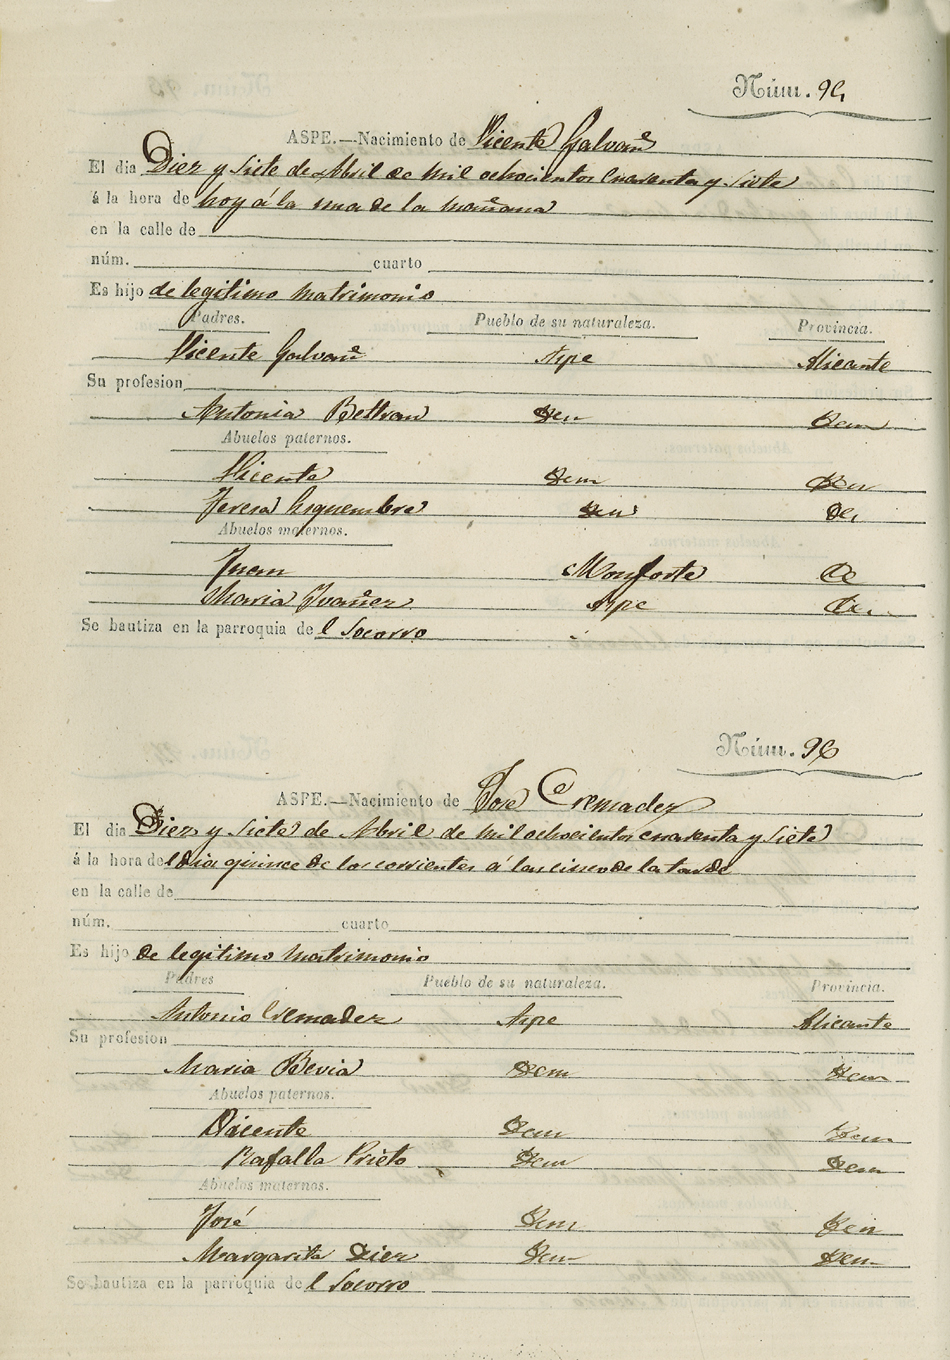 Núm. 94
ASPE.—Nacimiento de Vicente Galvañ
El dia Diez y siete de Abril de mil ochocientos cuarenta y siete
á la hora de hoy á la una de la mañana
en la calle de
núm. cuarto
Es hijo de legitimo matrimonio
Padres. Pueblo de su naturaleza. Provincia.
Vicente Galvañ Aspe Alicante
Su profesion
Antonia Beltran Idem Idem
Abuelos paternos.
Vicente Idem Idem
Teresa Esquembre Idem
Abuelos maternos.
Juan Monforte
Maria Ivañez Aspe
Se bautiza en la parroquia del Socorro
Núm. 96
ASPE.—Nacimiento de José Cremadez
El dia Diez y siete de Abril de mil ochocientos cuarenta y siete
á la hora del dia quince de los corrientes á las cinco de la tarde
en la calle de
núm. cuarto
Es hijo de legitimo matrimonio
Padres Pueblo de su naturaleza. Provincia.
Antonio Cremadez Aspe Alicante
Su profesion
Maria Bevia Idem Idem
Abuelos paternos.
Vicente Idem Idem
Rafalla Prieto Idem Idem
Abuelos maternos.
José Idem Idem
Margarita Diez Idem Idem
Se bautiza en la parroquia del Socorro